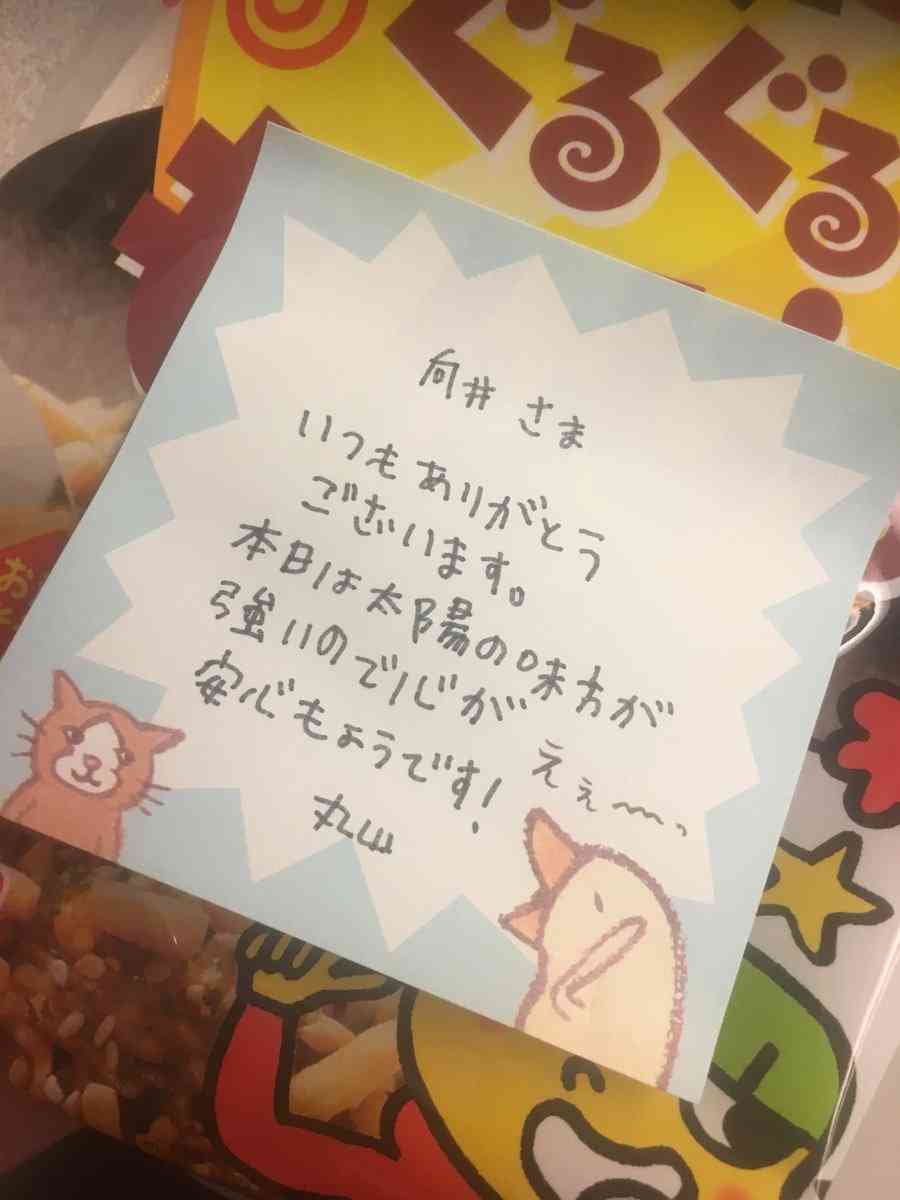 ぐるぐる
向井 さま
いつもありがとう
ございます。
本日は太陽の味方が
強いので心が
安心もようです!
ええ〜っ
丸山
お